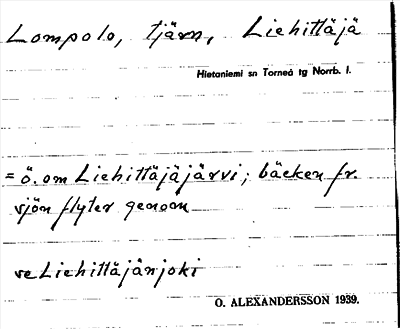 Lompolo, tjärn, Liehittäjä
Hietaniemi sn Torneå tg Norrb. l.
= ö. om Liehittäjäjärvi; bäcken fr.
sjön flyter genom
se Liehittäjänjoki
O. ALEXANDERSSON 1939.